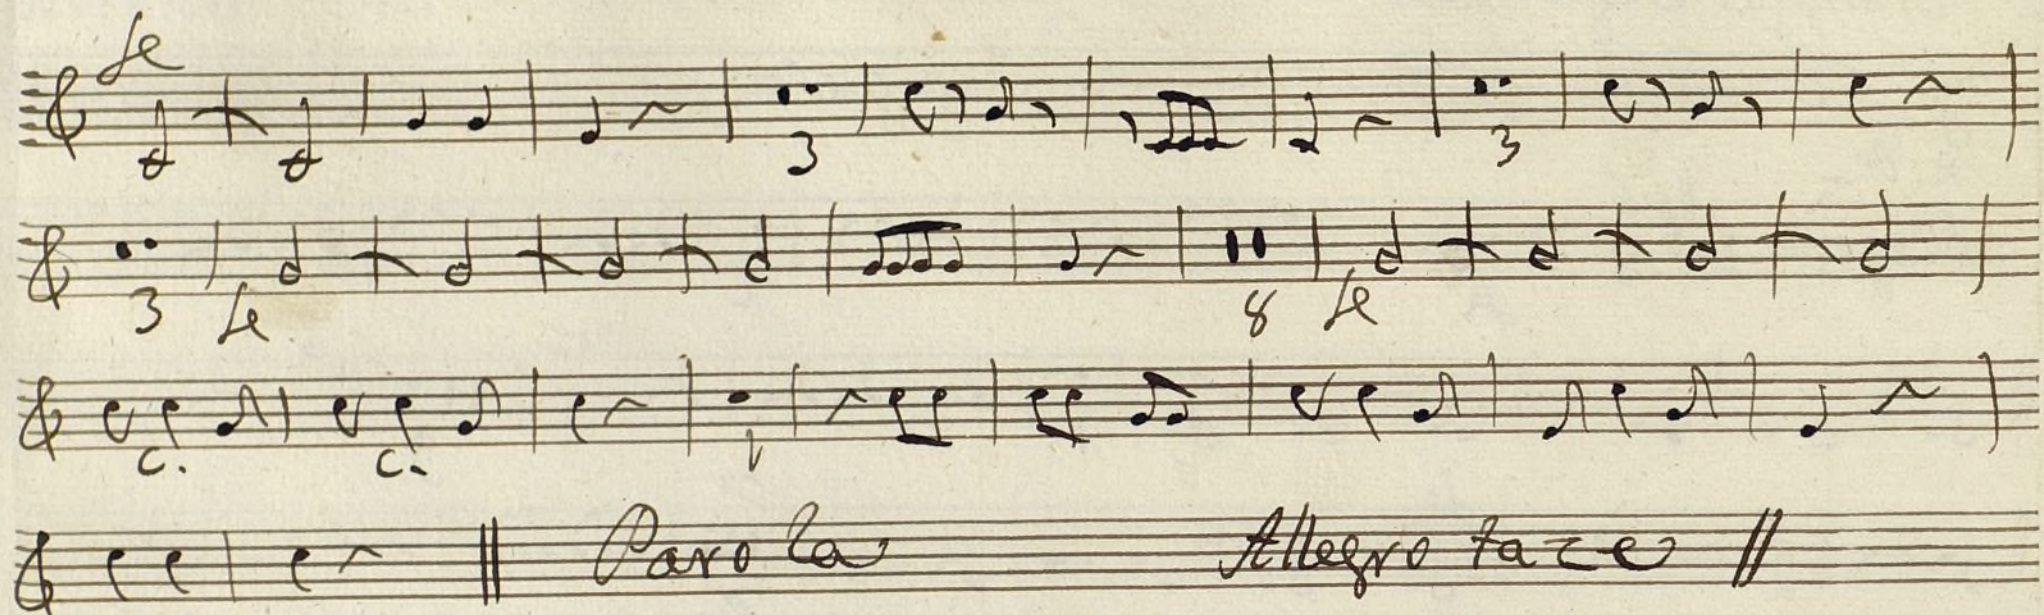 fe
3 3
3 fe 8 fe
c. c. 1
Parola Allegro tace